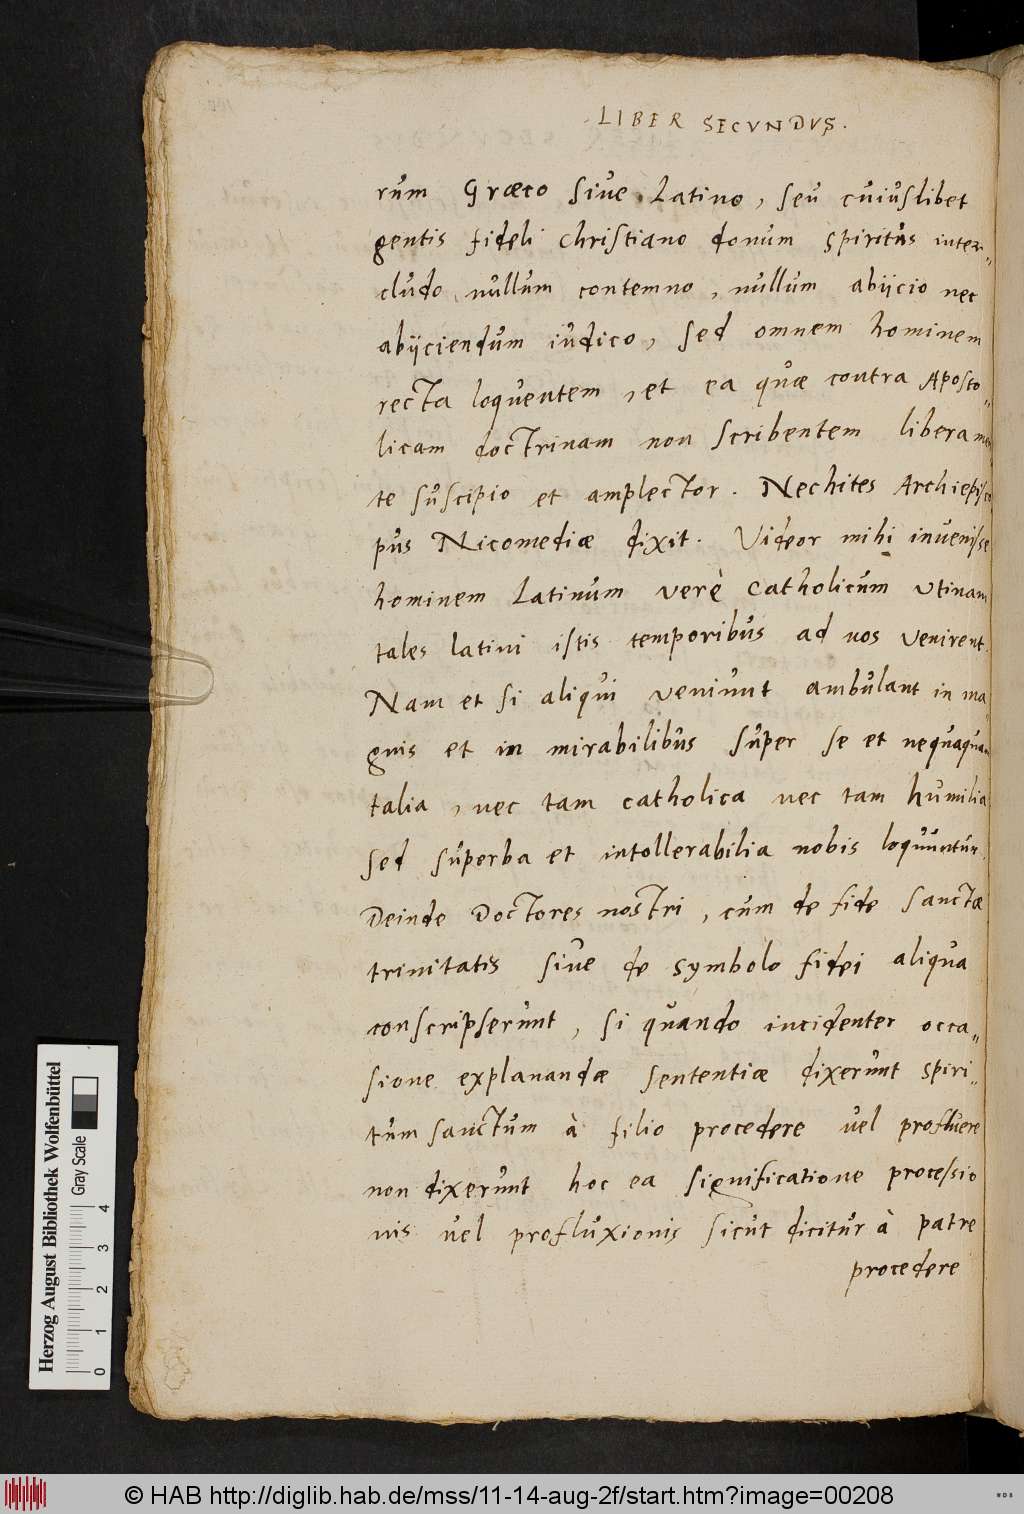 LIBER SECVNDVS.
rum Græco siue Latino, seu cuiuslibet
gentis fideli christiano donum spiritus inter„
cludo, nullum contemno, nullum abijcio nec
abijciendum iudico, sed omnem hominem
recta loquentem, et ea quæ contra Aposto„
licam doctrinam non scribentem liberamen
te suscipio et amplector. Nechites Archiepisco
pus Nicomediæ dixit. Videor mihi inuenisse
hominem Latinum verè catholicum utinam
tales latini istis temporibus ad nos venirent.
Nam et si aliqui veniunt ambulant in ma„
gnis et in mirabilibus super se et nequaquam
talia, nec tam catholica nec tam humilia
sed superba et intollerabilia nobis loquuntur.
Deinde Doctores nostri, cum de fide sanctæ
trinitatis siue de symbolo fidei aliqua
conscripserunt, si quando incidenter occa„
sione explanandæ sententiæ dixerunt spiri„
tum sanctum à filio procedere vel profluere
non dixerunt hoc ea significatione processio
nis vel profluxionis sicut dicitur à patre
procedere
Herzog August Bibliothek Wolfenbüttel
Gray Scale
0 1 2 3 4
© HAB http://diglib.hab.de/mss/11-14-aug-2f/start.htm?image=00208